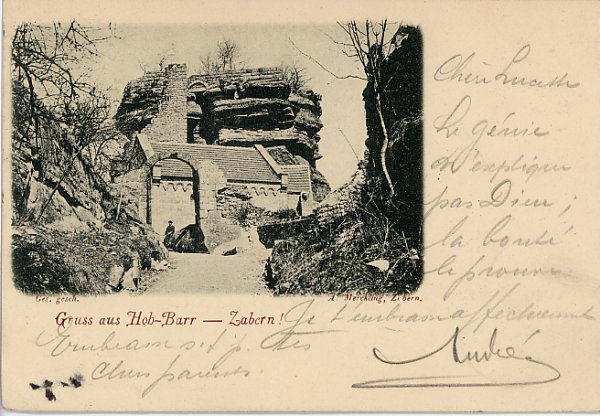 Chérie Lucette
Le génie
n'explique
pas Dieu ;
la bonté
le prouve
Ges. gesch.
A. Merckling, Zabern.
Gruss aus Hoh-Barr — Zabern!
Je t'embrasse affectueusement
Embrasse s.t.p. tes
chers parents.
André